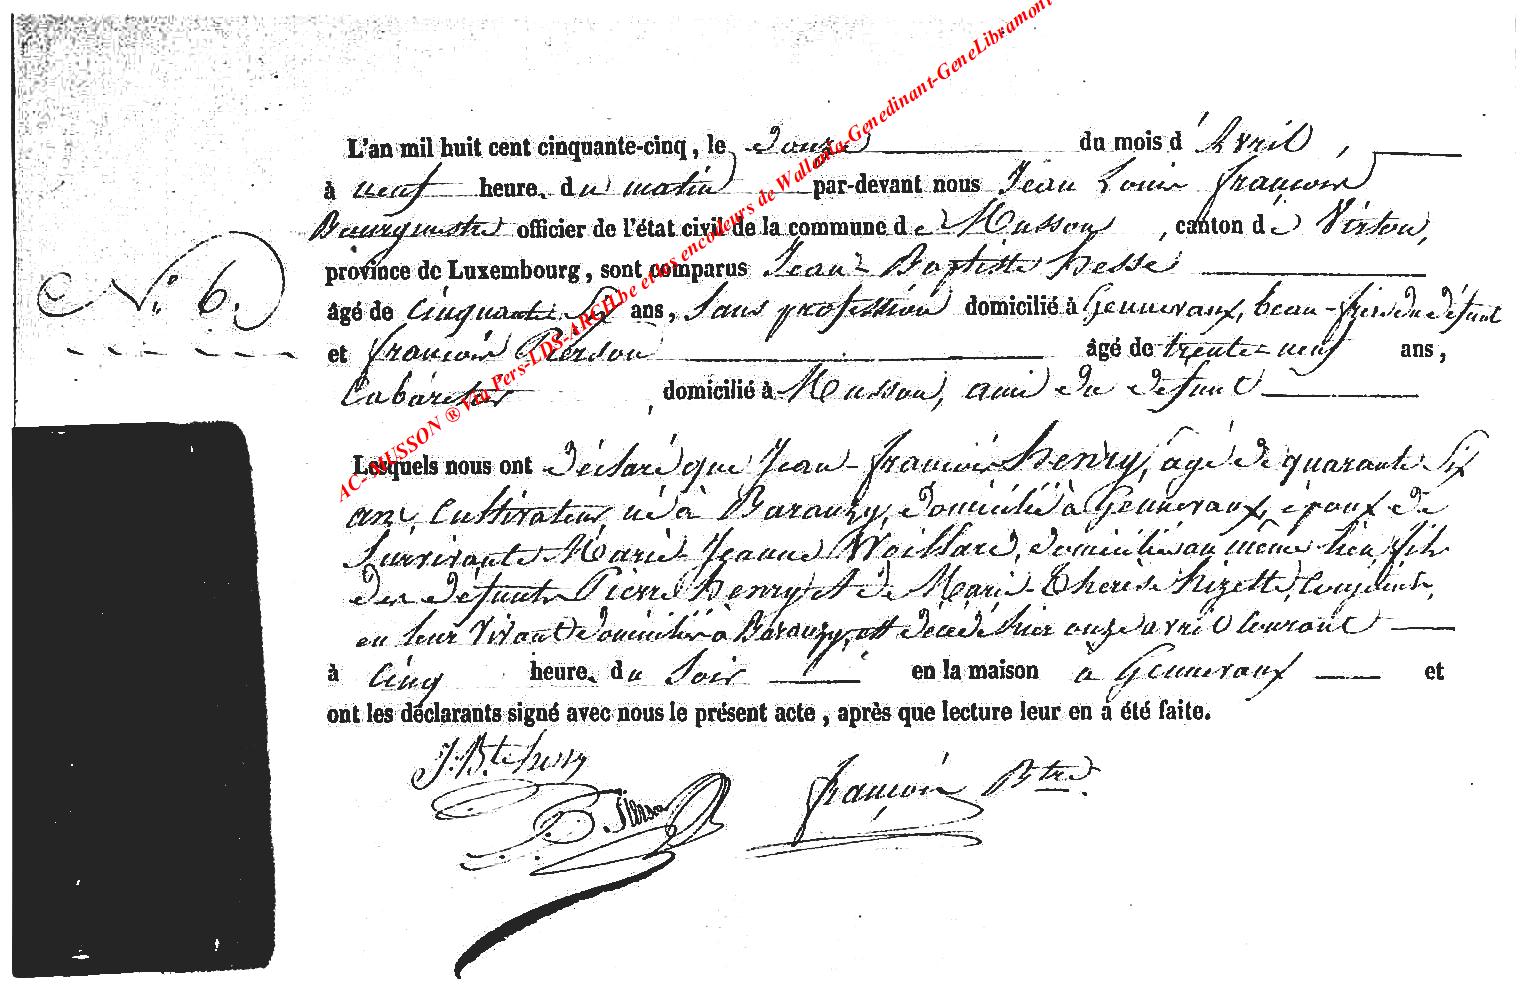 AC-MUSSON ® Via Pers-LDS-ARCH.be et les encodeurs de Wallonia-Genedinant-GeneLibramont
L'an mil huit cent cinquante-cinq, le douze du mois d'Avril,
à neuf heure, du matin par-devant nous Jean Louis françois
Bourguestre officier de l'état civil de la commune de Musson, canton de Virton,
province de Luxembourg, sont comparus Jean-Baptiste hesse
N.° 6.
âgé de cinquante ans, sans profession domicilié à Gennevaux, beau-frère du défunt
et françois Pierson âgé de trente-neuf ans,
Cabaretier, domicilié à Musson, ami du défunt
Lesquels nous ont déclaré que Jean-françois henry, âgé de quarante six
ans, Cultivateur, né à Baranzy, domicilié à Gennevaux, époux de
Survivante Marie-Jeanne Woillard, domiciliée au même lieu, fils
des défunts Pierre henry et de Marie-Therèse hizette, Conjoints,
en leur vivant domiciliés à Baranzy, est décédé hier onze avril courant
à cinq heure, du soir en la maison à Gennevaux et
ont les déclarants signé avec nous le présent acte, après que lecture leur en à été faite.
J. B.te
Pierson
françois Btre